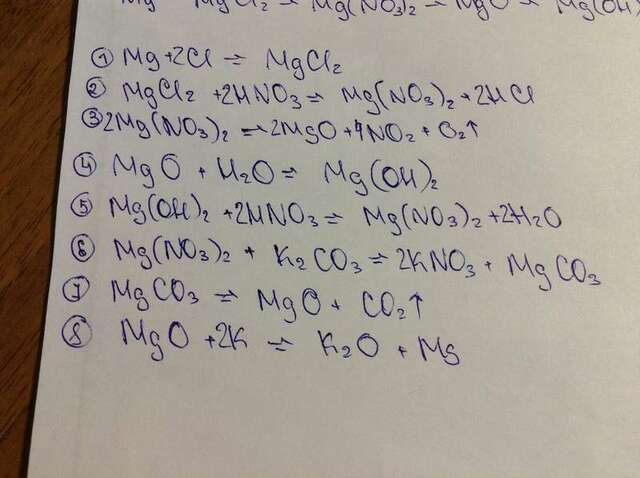 Mg MgCl₂ → Mg(NO₃)₂ → MgO → Mg(OH)
① Mg + 2Cl ⇌ MgCl₂
② MgCl₂ + 2HNO₃ ⇌ Mg(NO₃)₂ + 2HCl
③ 2Mg(NO₃)₂ ⇌ 2MgO + 4NO₂ + O₂↑
④ MgO + H₂O ⇌ Mg(OH)₂
⑤ Mg(OH)₂ + 2HNO₃ ⇌ Mg(NO₃)₂ + 2H₂O
⑥ Mg(NO₃)₂ + K₂CO₃ ⇌ 2KNO₃ + MgCO₃
⑦ MgCO₃ ⇌ MgO + CO₂↑
⑧ MgO + 2K ⇌ K₂O + Mg